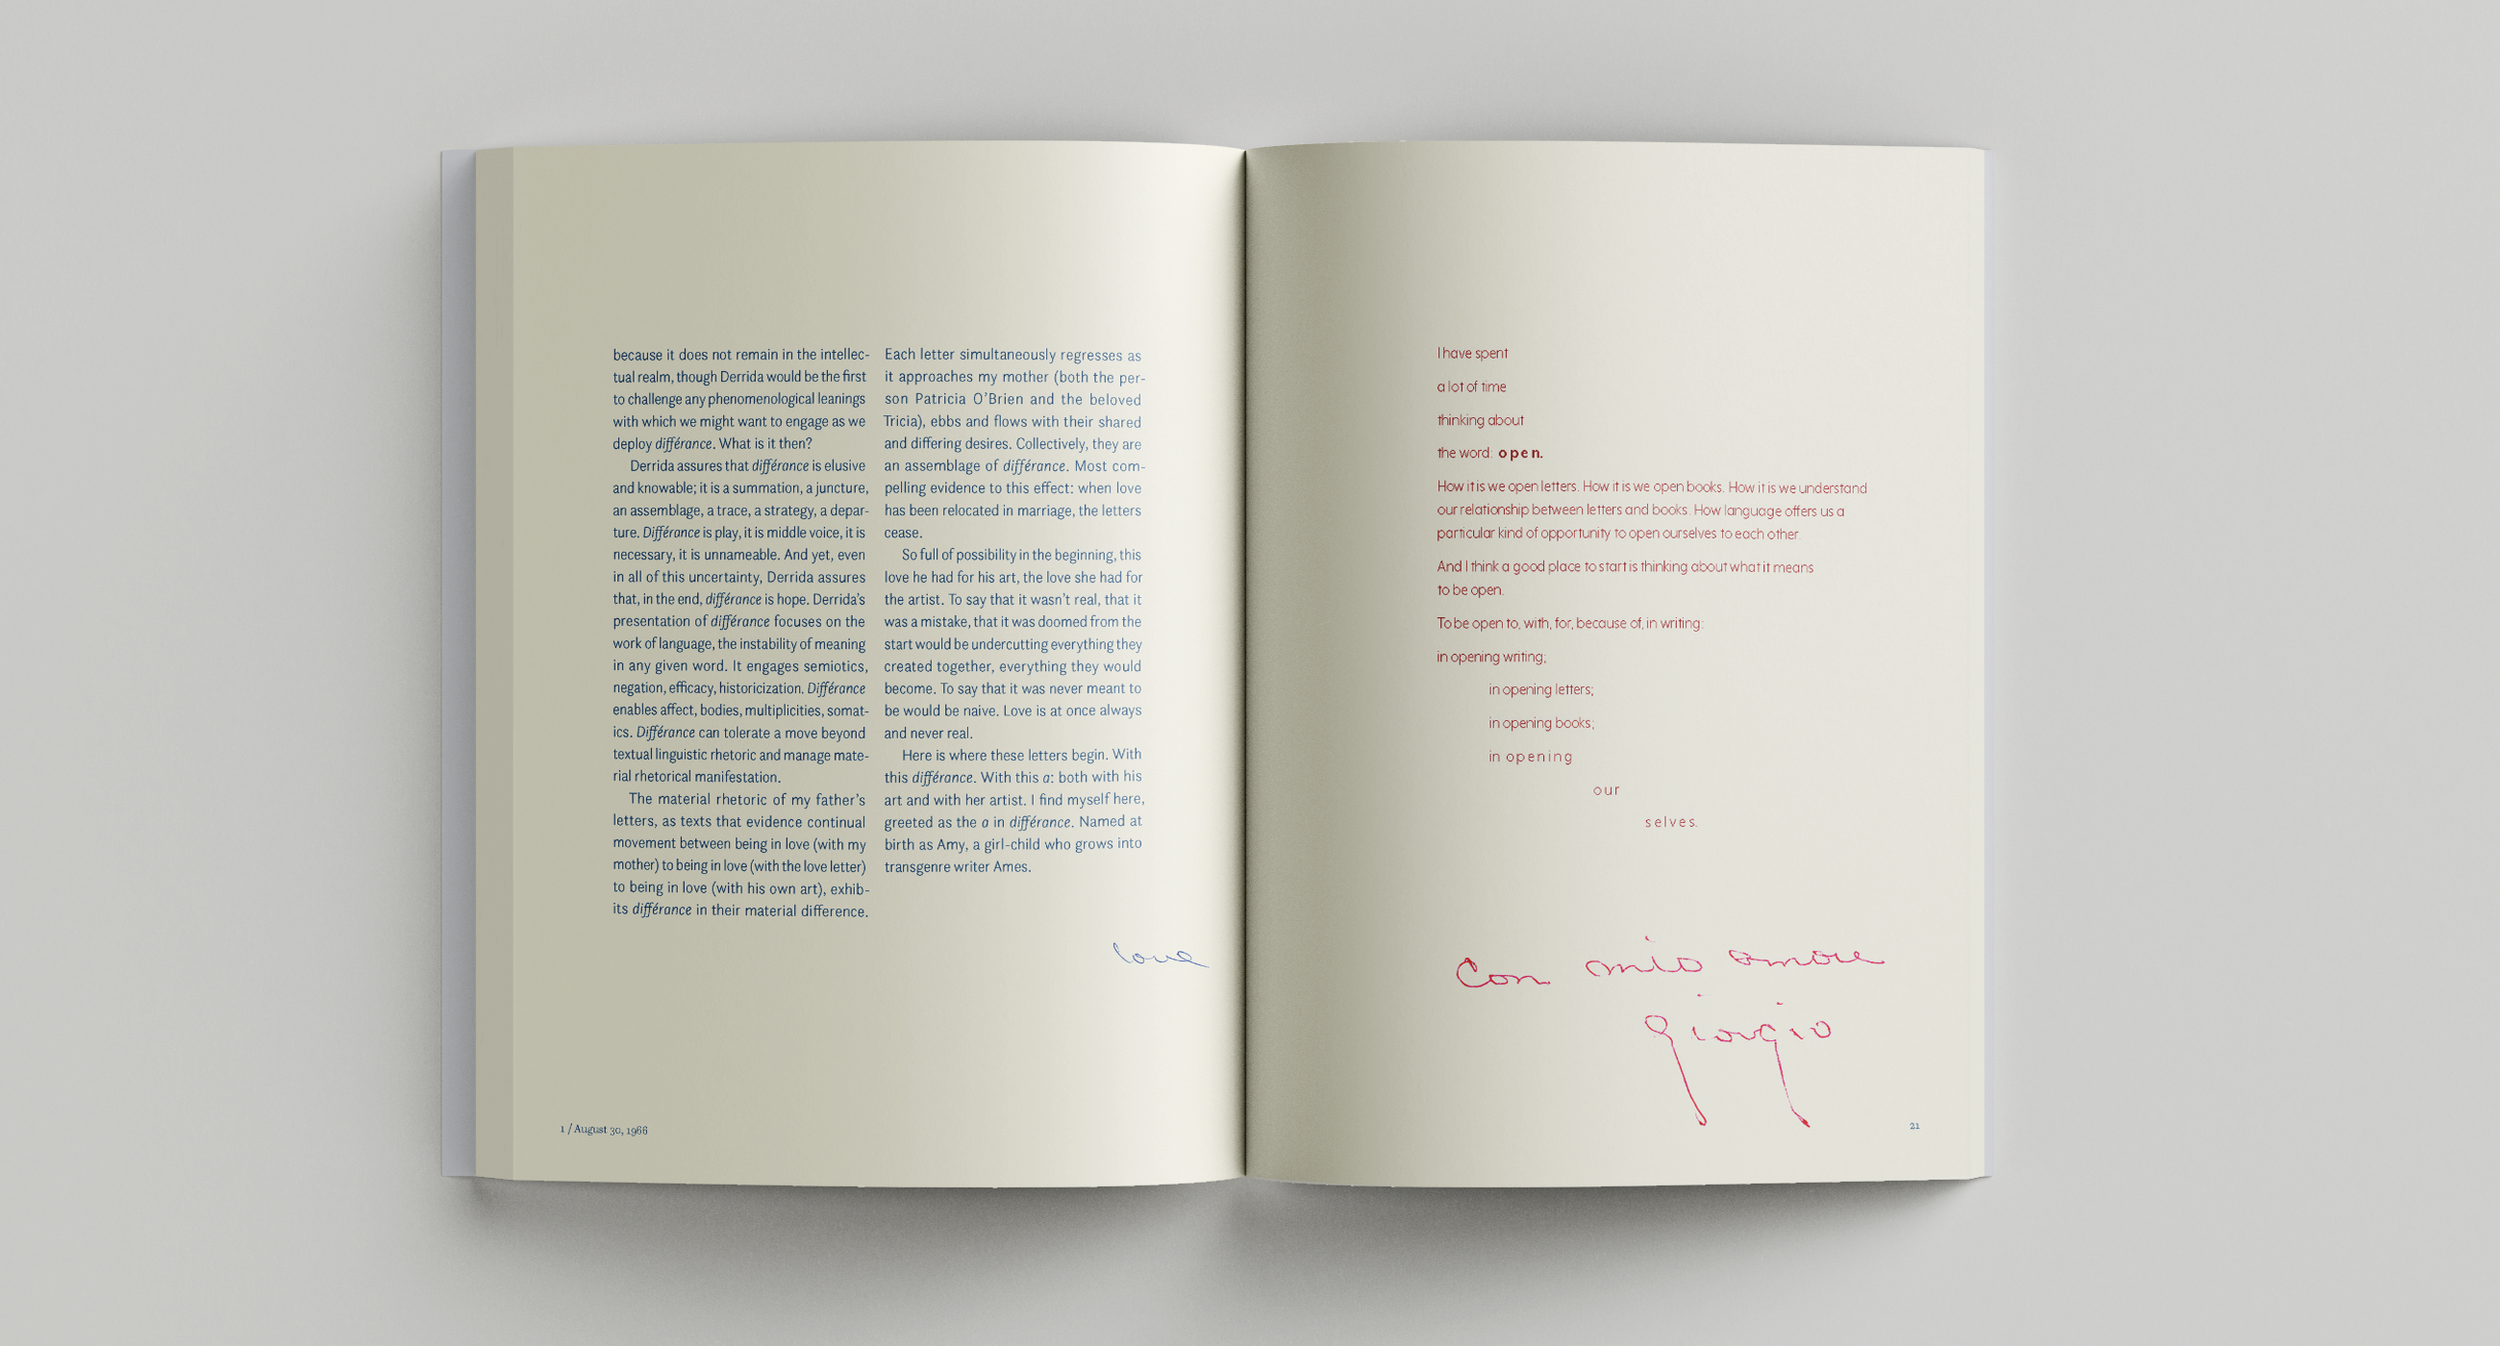 because it does not remain in the intellec-
tual realm, though Derrida would be the first
to challenge any phenomenological leanings
with which we might want to engage as we
deploy différance. What is it then?
Derrida assures that différance is elusive
and knowable; it is a summation, a juncture,
an assemblage, a trace, a strategy, a depar-
ture. Différance is play, it is middle voice, it is
necessary, it is unnameable. And yet, even
in all of this uncertainty, Derrida assures
that, in the end, différance is hope. Derrida's
presentation of différance focuses on the
work of language, the instability of meaning
in any given word. It engages semiotics,
negation, efficacy, historicization. Différance
enables affect, bodies, multiplicities, somat-
ics. Différance can tolerate a move beyond
textual linguistic rhetoric and manage mate-
rial rhetorical manifestation.
The material rhetoric of my father's
letters, as texts that evidence continual
movement between being in love (with my
mother) to being in love (with the love letter)
to being in love (with his own art), exhib-
its différance in their material difference.
Each letter simultaneously regresses as
it approaches my mother (both the per-
son Patricia O'Brien and the beloved
Tricia), ebbs and flows with their shared
and differing desires. Collectively, they are
an assemblage of différance. Most com-
pelling evidence to this effect: when love
has been relocated in marriage, the letters
cease.
So full of possibility in the beginning, this
love he had for his art, the love she had for
the artist. To say that it wasn't real, that it
was a mistake, that it was doomed from the
start would be undercutting everything they
created together, everything they would
become. To say that it was never meant to
be would be naive. Love is at once always
and never real.
Here is where these letters begin. With
this différance. With this a: both with his
art and with her artist. I find myself here,
greeted as the a in différance. Named at
birth as Amy, a girl-child who grows into
transgenre writer Ames.
love
1 / August 30, 1966
I have spent
a lot of time
thinking about
the word: open.
How it is we open letters. How it is we open books. How it is we understand
our relationship between letters and books. How language offers us a
particular kind of opportunity to open ourselves to each other.
And I think a good place to start is thinking about what it means
to be open.
To be open to, with, for, because of, in writing:
in opening writing;
in opening letters;
in opening books;
in opening
our
selves.
Con mio amore
giorgio
21